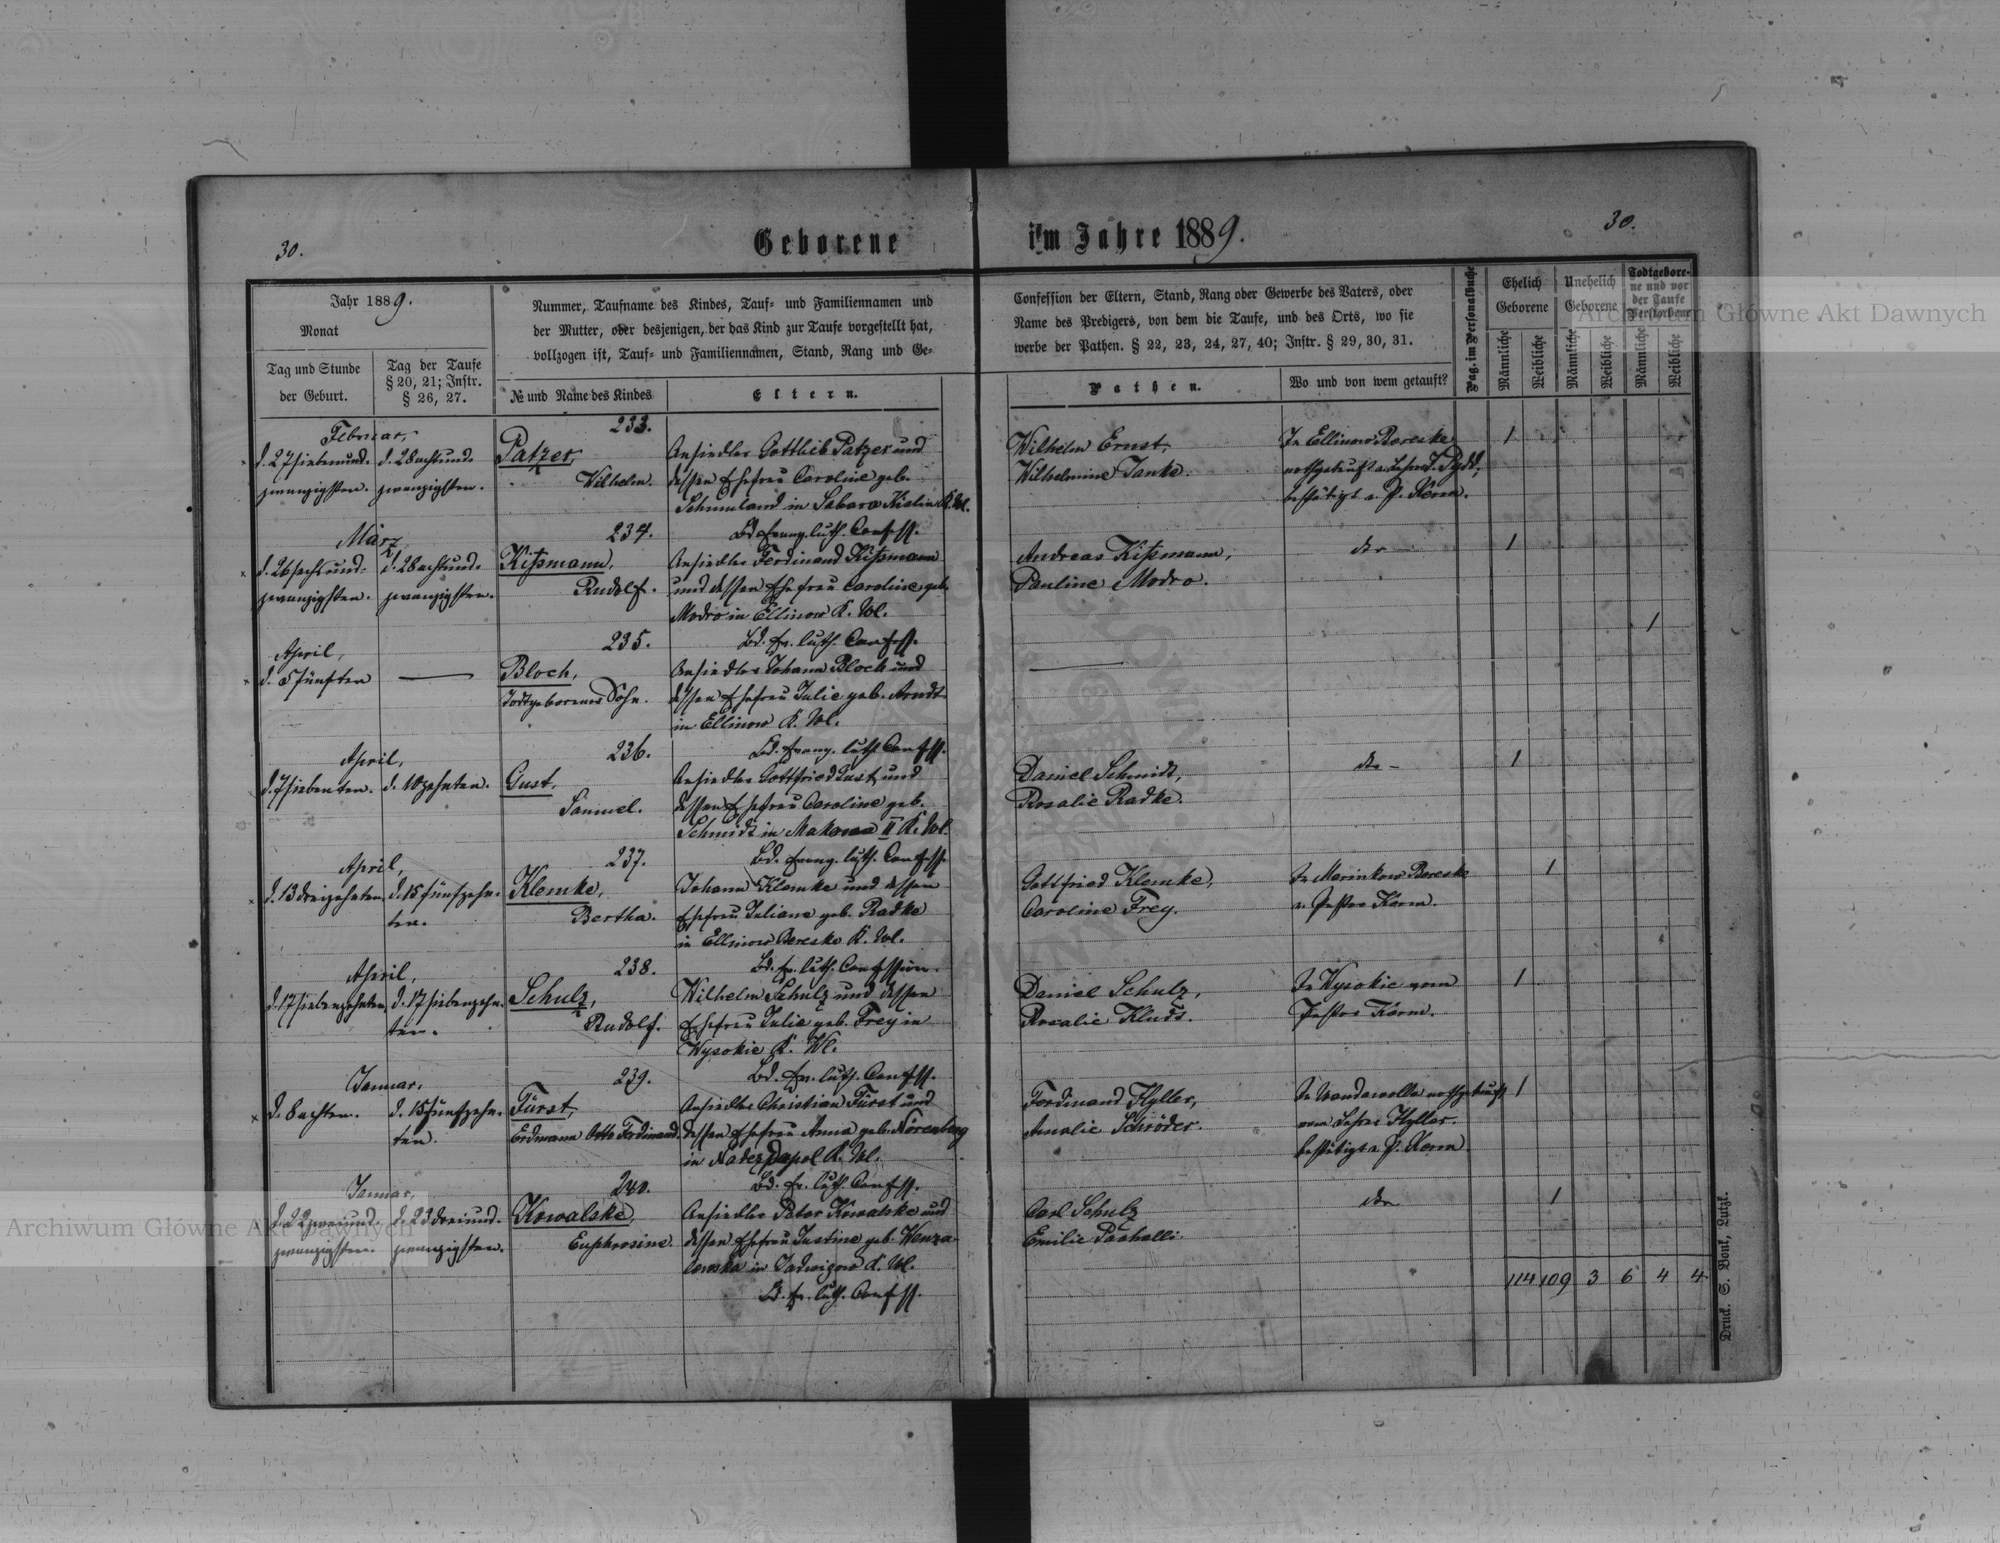 30.
Geborene im Jahre 1889.
30.
Jahr 1889.
Monat
Tag und Stunde
der Geburt.
Tag der Taufe
§ 20, 21; Instr.
§ 26, 27.
Nummer, Taufname des Kindes, Tauf= und Familiennamen und
der Mutter, oder desjenigen, der das Kind zur Taufe vorgestellt hat,
vollzogen ist, Tauf= und Familiennamen, Stand, Rang und Ge=
№ und Name des Kindes
Eltern.
Confession der Eltern, Stand, Rang oder Gewerbe des Vaters, oder
Name des Predigers, von dem die Taufe, und des Orts, wo sie
werbe der Pathen. § 22, 23, 24, 27, 40; Instr. § 29, 30, 31.
Pathen.
Wo und von wem getauft?
Pag. im Personalbuche
Ehelich
Geborene
Unehelich
Geborene
Todtgebore-
ne und vor
der Taufe
Verstorbene
Männliche
Weibliche
Männliche
Weibliche
Männliche
Weibliche
Februar,
d. 27 siebenund-
zwanzigsten.
d. 28 achtund-
zwanzigsten.
233.
Patzer,
Wilhelm.
Ansiedler Gottlieb Patzer und
dessen Ehefrau Caroline geb.
in K. Wl.
Bd. Evang. luth. Confess.
Wilhelm Ernst,
Wilhelmine Janke.
In Ellinow Bereske
bestätigt v. P. Kerm.
1
März,
d. 26 sechsund-
zwanzigsten.
d. 28 achtund-
zwanzigsten.
234.
Kißmann,
Rudolf.
Ansiedler Ferdinand Kißmann
und dessen Ehefrau Caroline geb.
Modro in Ellinow K. Wl.
Bd. Ev. luth. Confess.
Andreas Kißmann,
Pauline Modro.
dto
1
April,
d. 5 fünften
235.
Bloch,
Todtgeborener Sohn.
Ansiedler Johann Bloch und
dessen Ehefrau Julie geb. Arndt
in Ellinow K. Wl.
Bd. Evang. luth. Confess.
1
April,
d. 7 siebenten.
d. 10 zehnten.
236.
Gust,
Samuel.
Ansiedler Gottfried Gust und
dessen Ehefrau Caroline geb.
Schmidt in II K. Wl.
Bd. Evang. luth. Confess.
Daniel Schmidt,
Rosalie Radke.
dto
1
April,
d. 13 dreizehnten
d. 15 fünfzehn-
ten.
237.
Klemke,
Bertha.
Johann Klemke und dessen
Ehefrau Juliane geb. Radke
in Ellinow Bereske K. Wl.
Bd. Ev. luth. Confession.
Gottfried Klemke,
Caroline Frey.
In Marinkow Bereske
v. Pastor Kerm.
1
April,
d. 17 siebenzehnten
d. 17 siebenzehn-
ten.
238.
Schulz,
Rudolf.
Wilhelm Schulz und dessen
Ehefrau Julie geb. Frey in
Wysokie K. Wl.
Bd. Ev. luth. Confess.
Daniel Schulz,
Rosalie
In Wysokie vom
Pastor Kerm.
1
Januar,
d. 8 achten.
d. 15 fünfzehn-
ten.
239.
Fürst,
Erdmann Otto Ferdinand.
Ansiedler Christian Fürst und
dessen Ehefrau Anna geb. Nörenberg
in K. Wl.
Bd. Ev. luth. Confess.
Ferdinand Hyller,
Amalie Schröder.
In nothgetauft
vom Lehrer Hyller.
bestätigt v. P. Kerm
1
Januar,
d. 22 zweiund-
zwanzigsten.
d. 23 dreiund-
zwanzigsten.
240.
Kowalske,
Euphrosine.
Ansiedler Peter Kowalske und
dessen Ehefrau Justine geb.
in K. Wl.
Bd. Ev. luth. Confess.
Carl Schulz
Emilie
dto
1
114 109 3 6 4 4
Druck. S. Bonk, Lutzk.
Archiwum Główne Akt Dawnych
Archiwum Główne Akt Dawnych